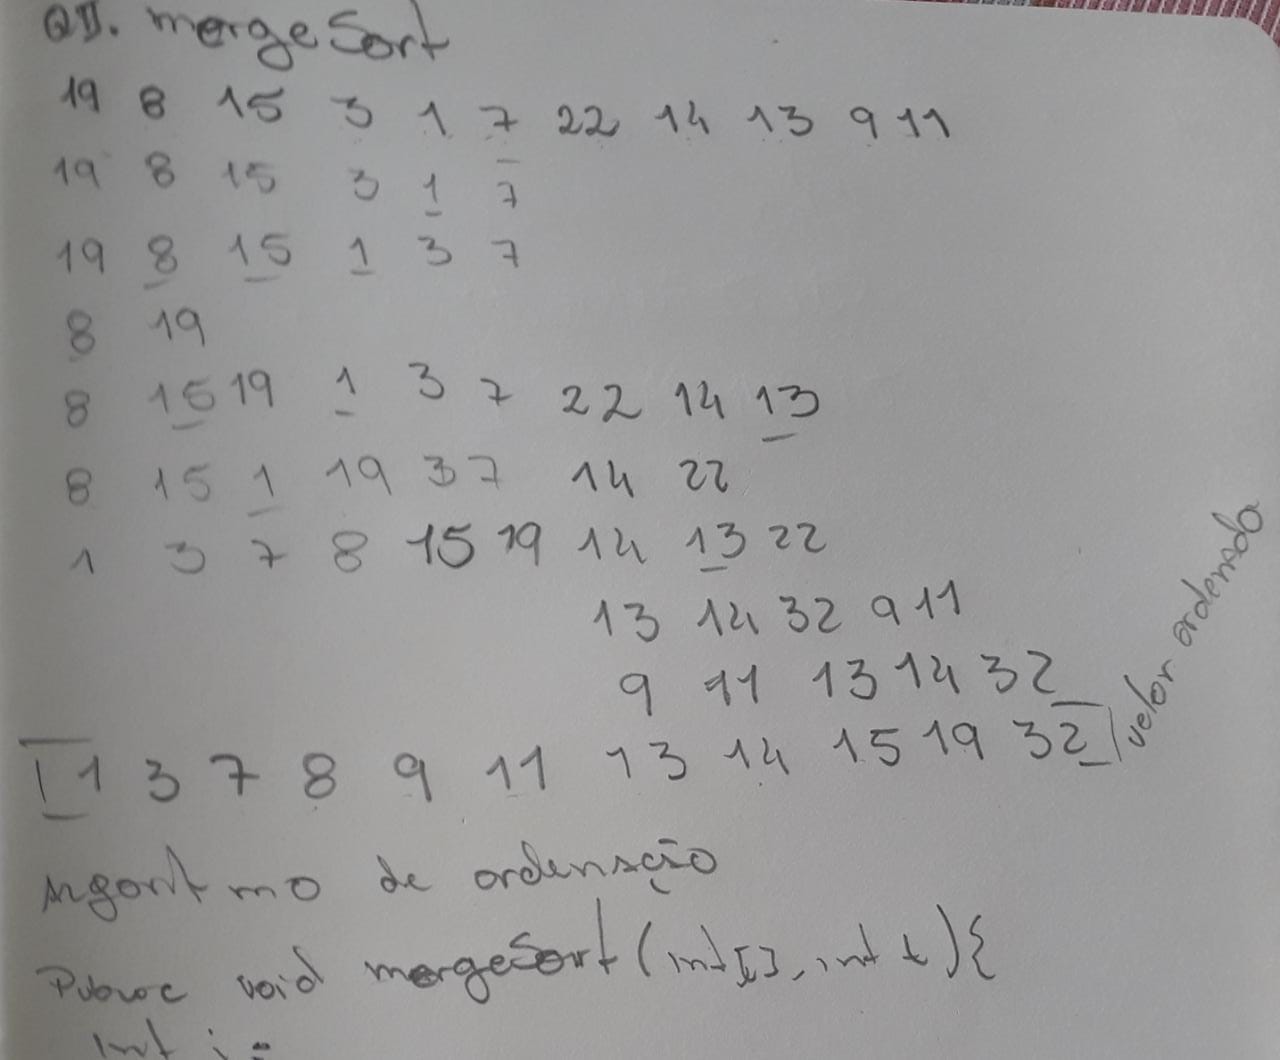 QII. mergeSort
19 8 15 3 1 7 22 14 13 9 11
19 8 15 3 1 7
19 8 15 1 3 7
8 19
8 15 19 1 3 7 22 14 13
8 15 1 19 3 7 14 22
1 3 7 8 15 19 14 13 22
13 14 32 9 11
9 11 13 14 32
1 3 7 8 9 11 13 14 15 19 32
vetor ordenado
Algoritmo de ordenação
Public void mergeSort (int[], int t){
Int i =